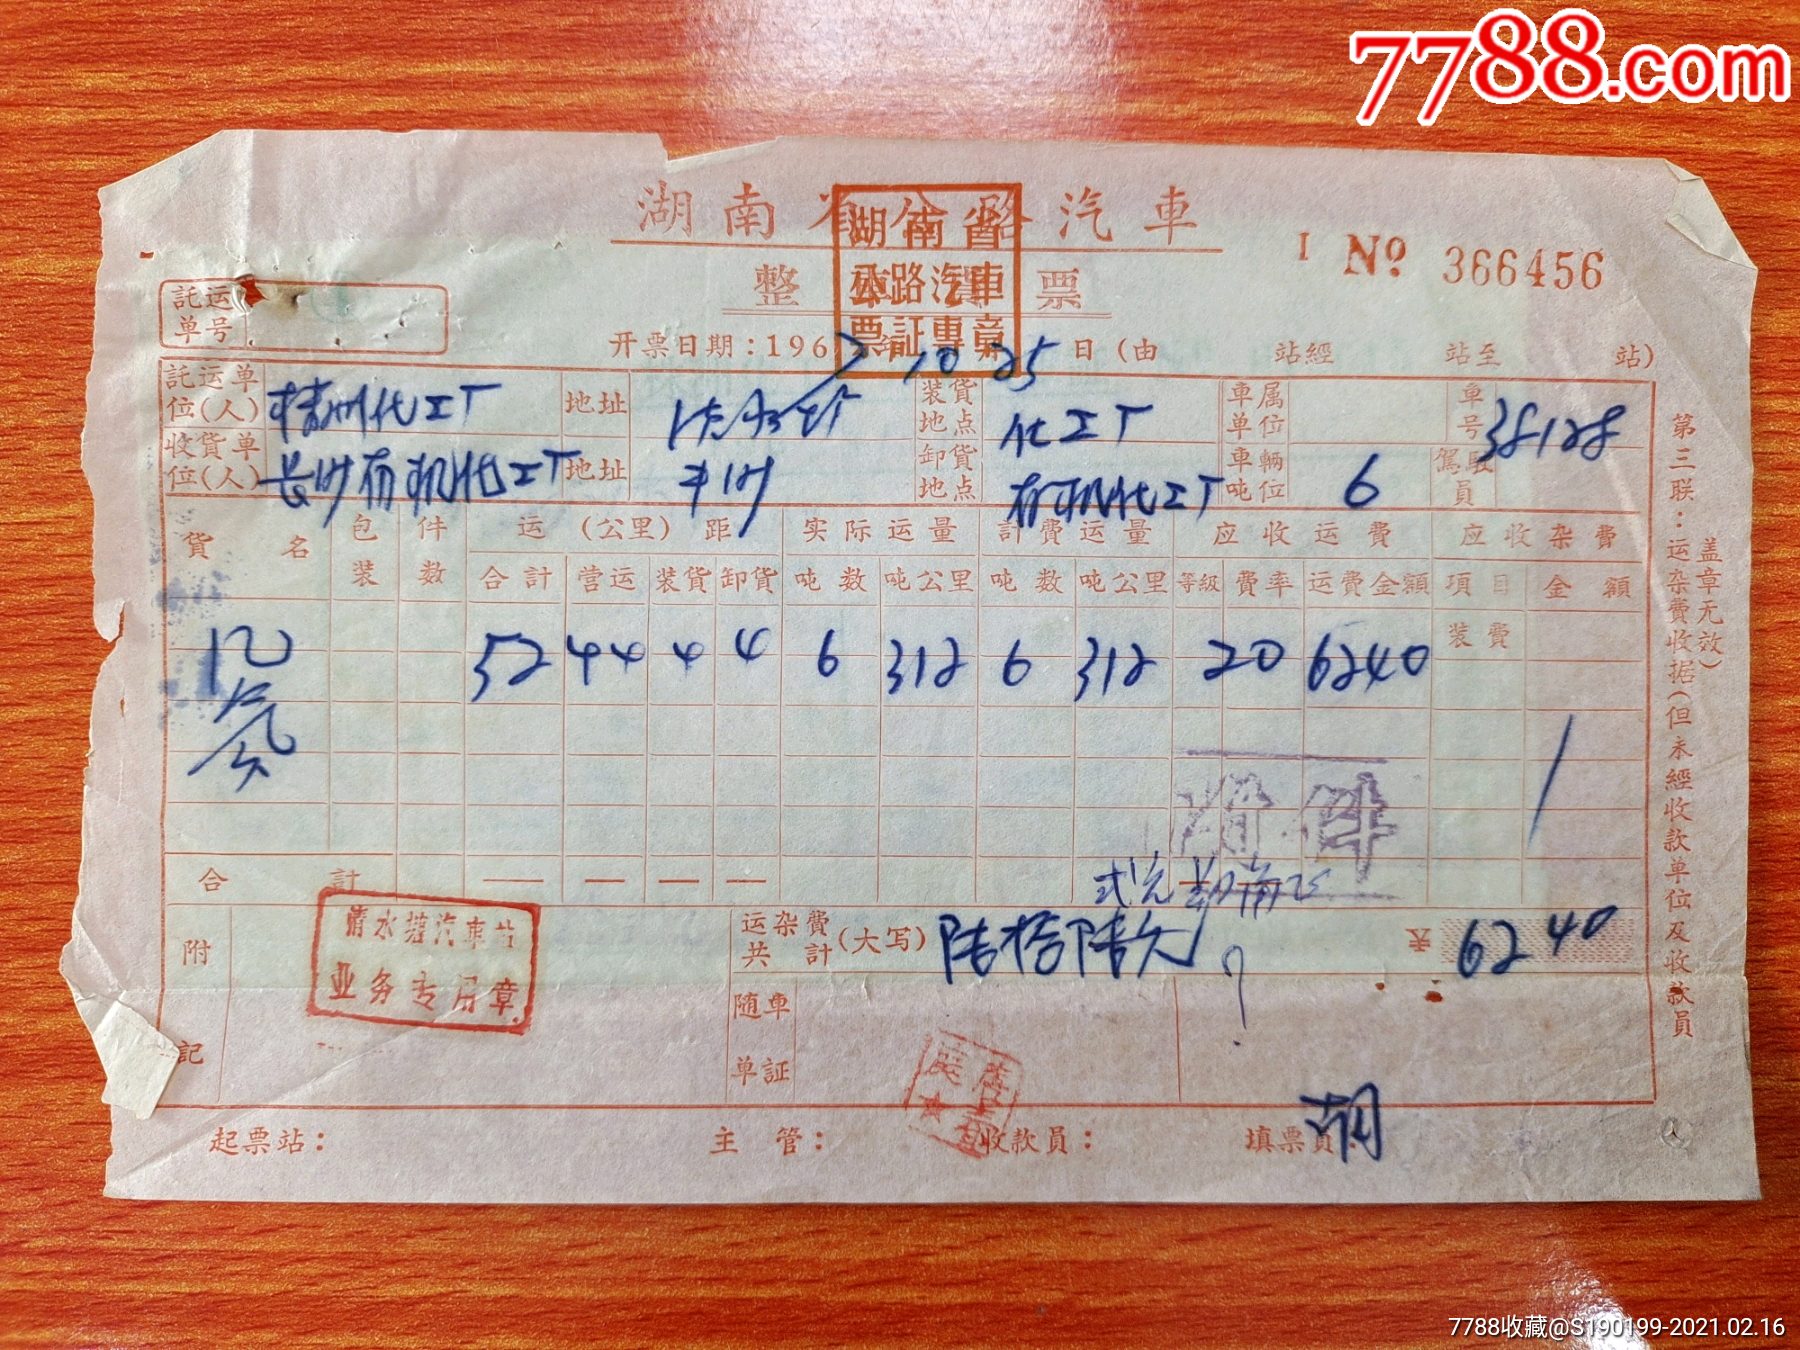 7788.com
湖南省公路汽車
湖南省
公路汽車
票証專章
整車貨票
I № 366456
託运单号
开票日期:1967 10 25日(由 站經 站至 站)
託运单位(人) 株洲化工厂 地址 清水塘 装貨地点 化工厂 車属单位 車号 38128
收貨单位(人) 长沙有机化工厂 地址 卸貨地点 有机化工厂 車輛吨位 6 駕駛員
貨名 包装 件数 运(公里)距 实际运量 計費运量 应收运費 应收杂費
合計 营运 装貨 卸貨 吨数 吨公里 吨数 吨公里 等級 費率 运費金額 項目 金額
52 44 4 4 6 312 6 312 20 6240 装費
附件
合計
清水塘汽車站
业务专用章
附記
运杂費共計(大写) 陆拾 6240
随車单証
起票站: 主管: 收款員: 填票員: 胡
第三联:运杂費收据(但未經收款单位及收款員盖章无效)
7788收藏@S190199-2021.02.16